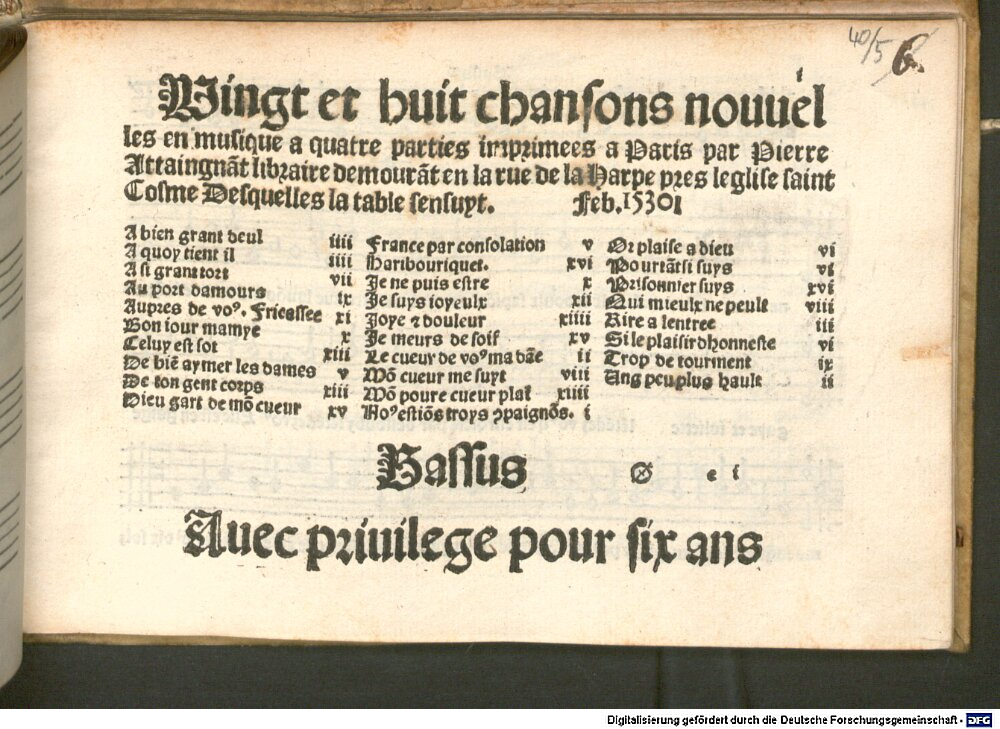 40/5 6.
Vingt et huit chansons nouuel
les en musique a quatre parties imprimees a Paris par Pierre
Attaingnãt libraire demourãt en la rue de la Harpe pres leglise saint
Cosme Desquelles la table sensuyt. Feb. 1530
A bien grant deul iiii
A quoy tient il iiii
A si grant tort vii
Au port damours ix
Aupres de voꝰ. Fricassee xi
Bon iour mamye x
Celuy est sot xiii
De biẽ aymer les dames v
De ton gent corps xiii
Dieu gart de mõ cueur xv
France par consolation v
Haribouriquet. xvi
Je ne puis estre x
Je suys ioyeulx xii
Joye ⁊ douleur xiiii
Je meurs de soif xv
Le cueur de voꝰ ma dãe ii
Mõ cueur me suyt viii
Mõ poure cueur plai xiiii
Noꝰ estiõs troys ꝯpaignõs. i
Or plaise a dieu vi
Pourtãt si suys vi
Prisonnier suys xvi
Qui mieulx ne peult viii
Rire a lentree iii
Si le plaisir dhonneste vi
Trop de tourment ix
Ung peu plus hault ii
Bassus e i
Auec priuilege pour six ans
Digitalisierung gefördert durch die Deutsche Forschungsgemeinschaft - DFG